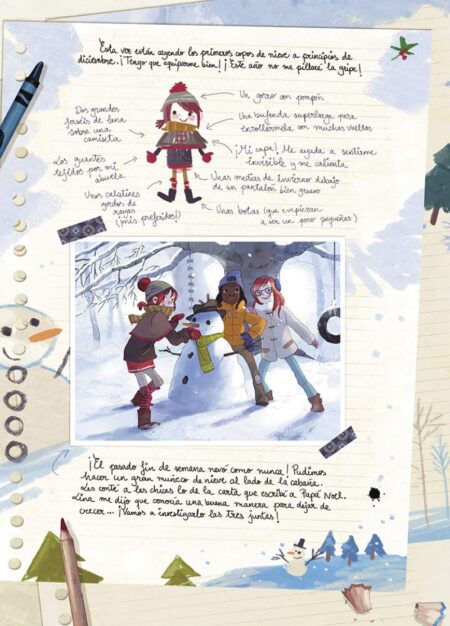 Esta vez están cayendo los primeros copos de nieve a principios de
diciembre. ¡Tengo que equiparme bien! ¡Este año no me pillará la gripe!
Dos grandes
jerséis de lana
sobre una
camiseta
Los guantes
tejidos por mi
abuela
Unos calcetines
gordos de
rayas
(¡mis preferidos!)
Un gorro con pompón
Una bufanda superlarga para
enrollármela con muchas vueltas
¡Mi capa! Me ayuda a sentirme
invisible y me calienta.
Unas medias de invierno debajo
de un pantalón bien grueso
Unas botas (que empiezan
a ser un poco pequeñas)
¡El pasado fin de semana nevó como nunca! Pudimos
hacer un gran muñeco de nieve al lado de la cabaña.
Les conté a las chicas lo de la carta que escribí a Papá Noel.
Lina me dijo que conocía una buena manera para dejar de
crecer... ¡Vamos a investigarlo las tres juntas!